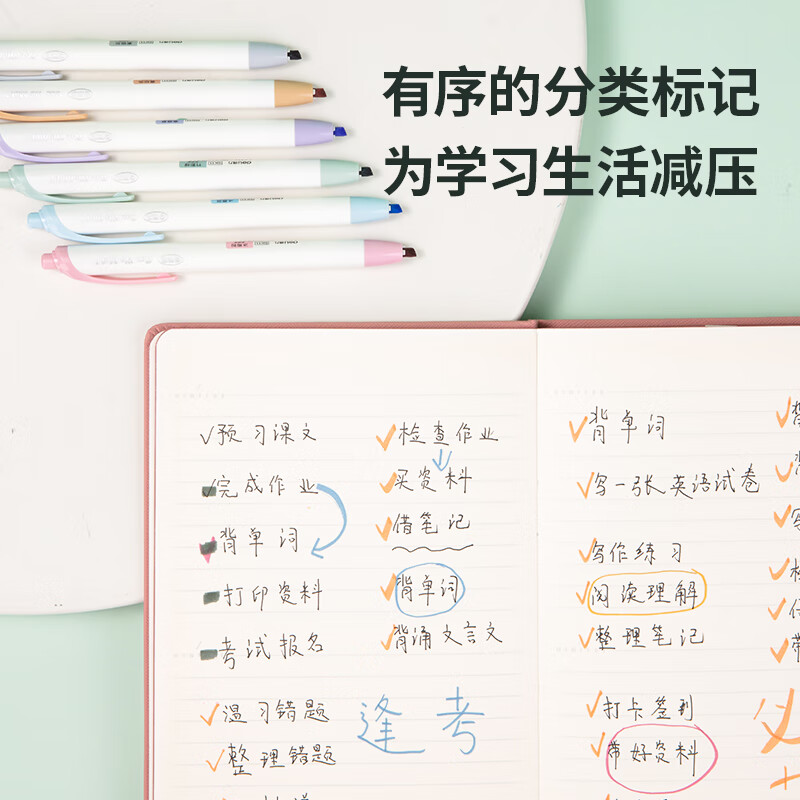 有序的分类标记
为学习生活减压
预习课文
完成作业
背单词
打印资料
考试报名
温习错题
整理错题
检查作业
买资料
借笔记
背单词
背诵文言文
逢考
背单词
写一张英语试卷
写作练习
阅读理解
整理笔记
打卡签到
带好资料